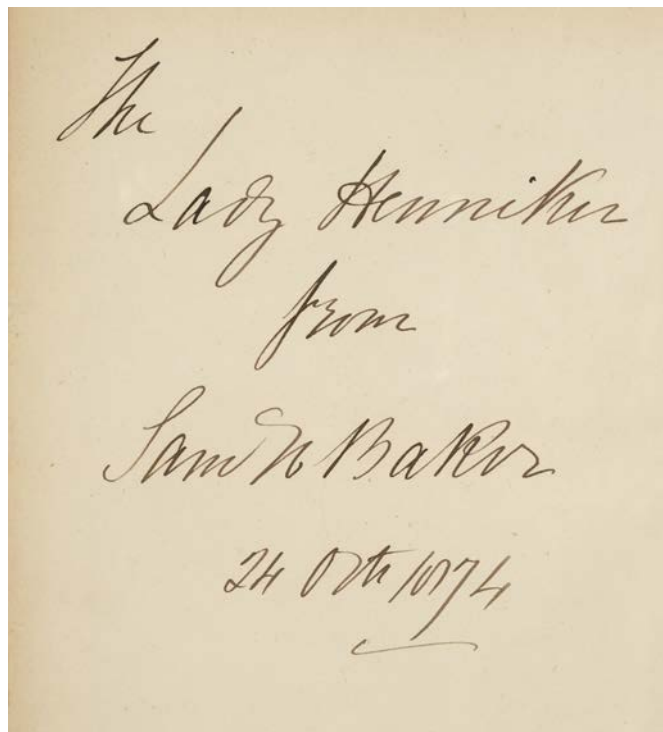 The
Lady Henniker
from
Saml W Baker
24 Octr 1874